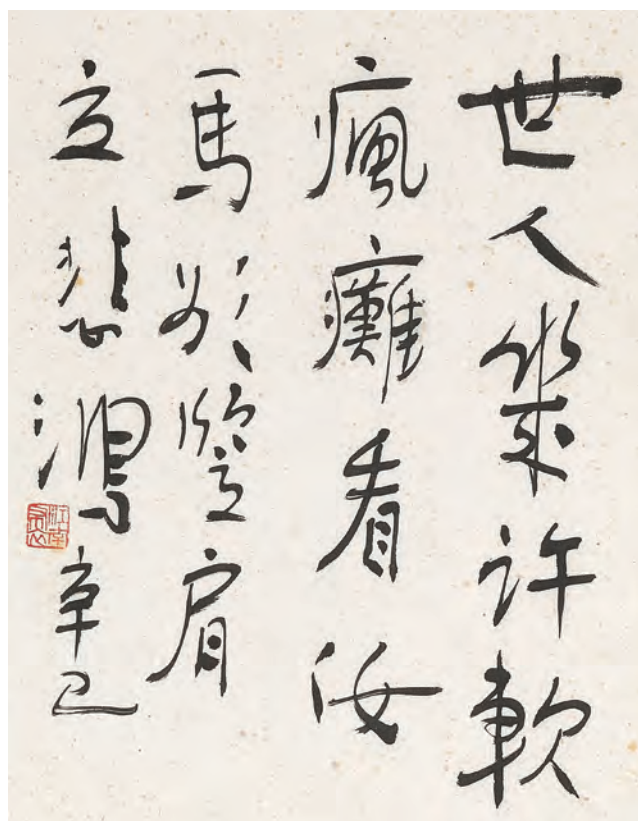 世人幾許軟
瘋癱看汝
焉能竪肩
立悲鴻辛巳